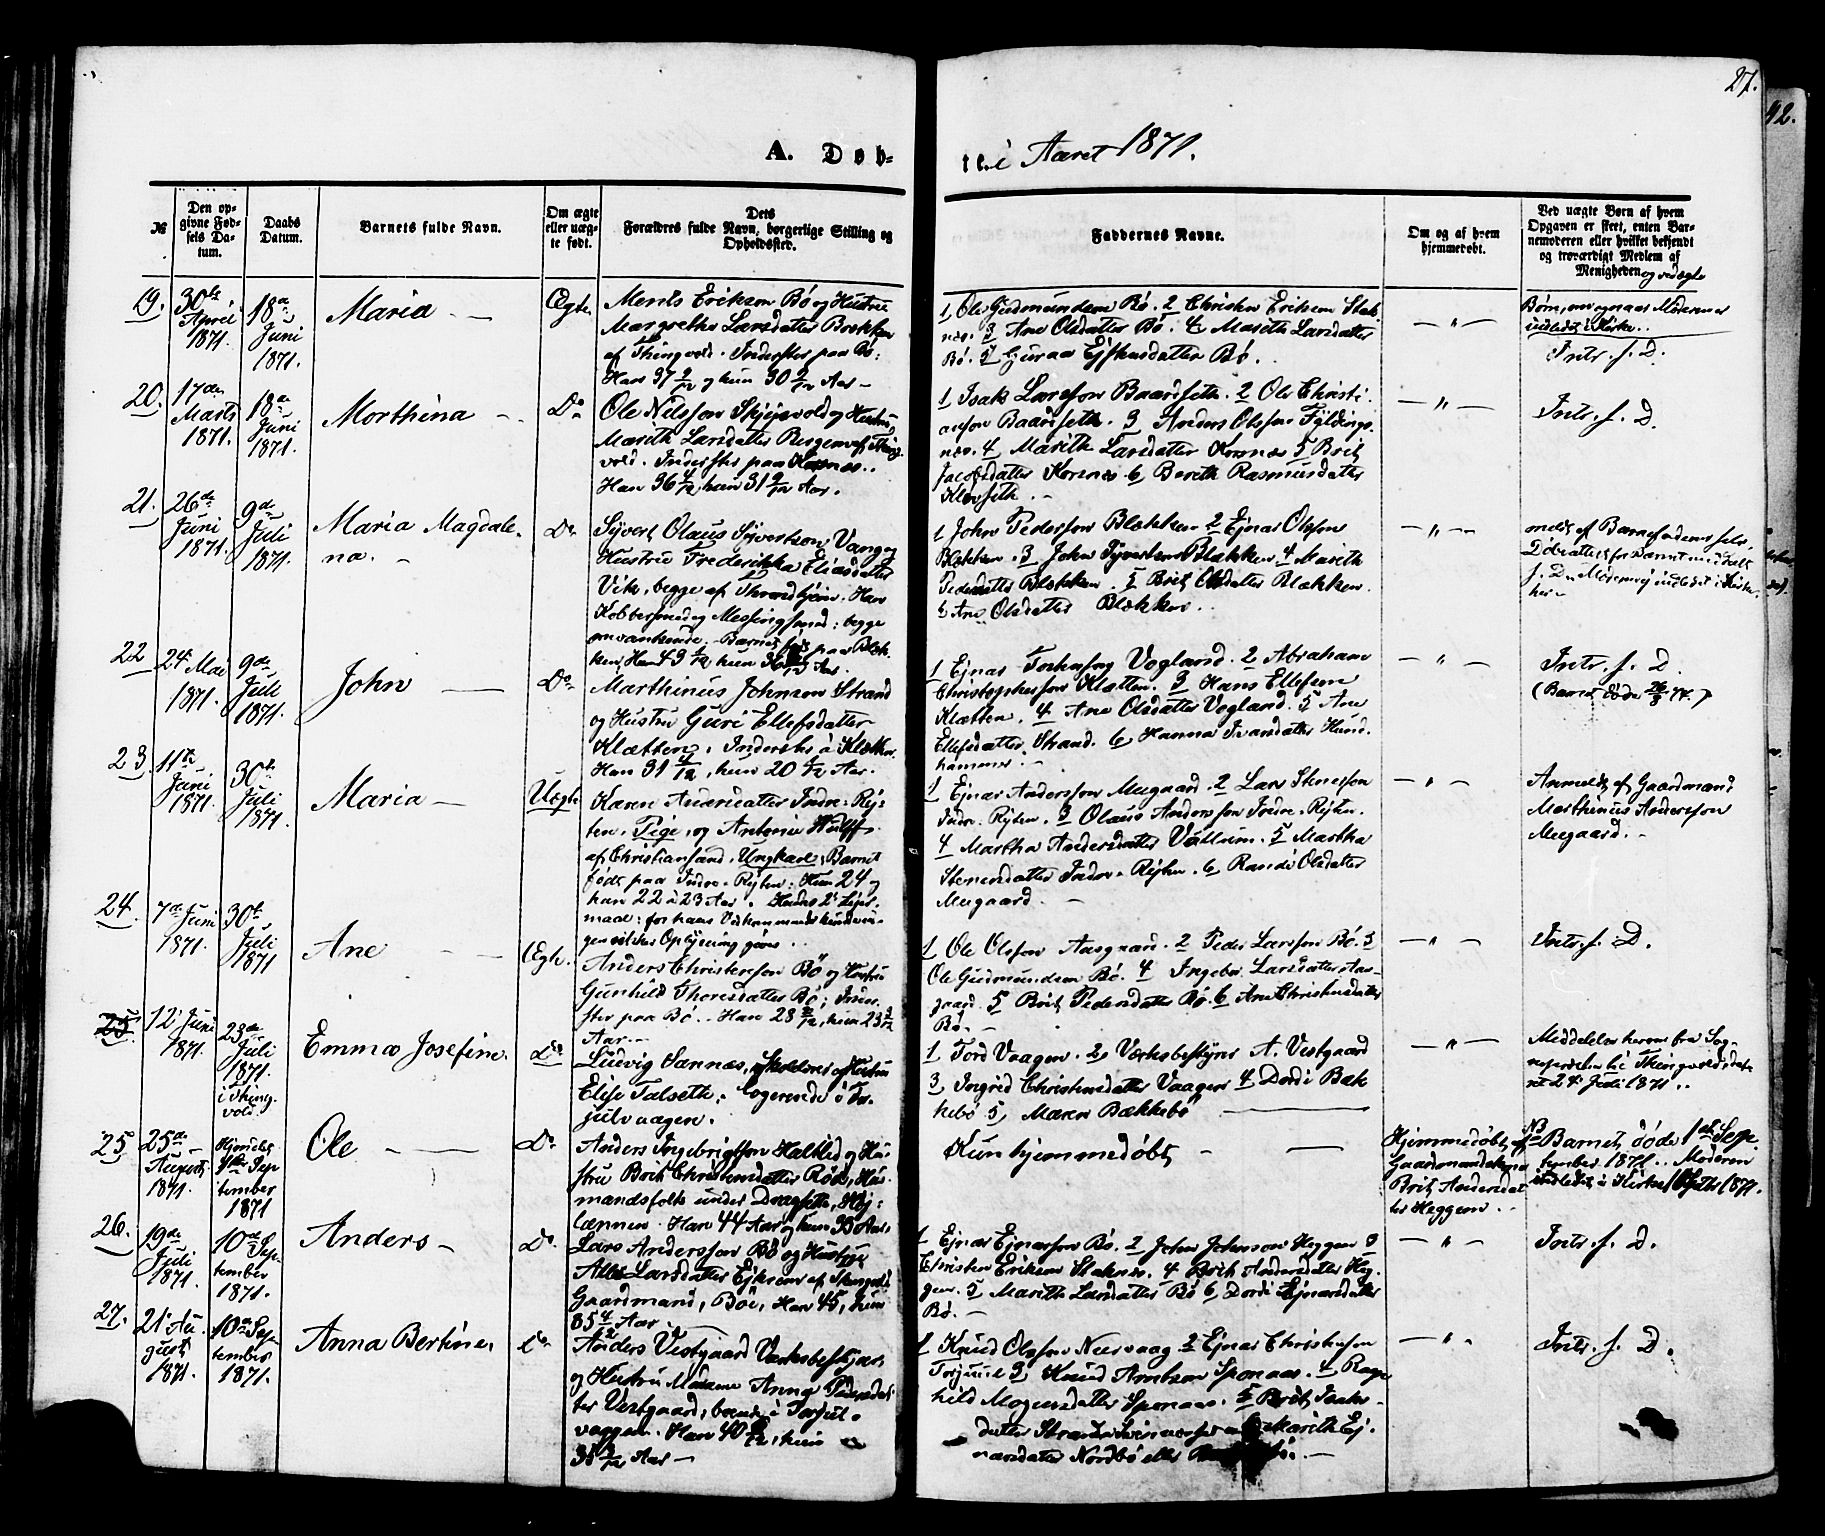 27.
42.
A. Døb-
te i Aaret 1871.
№
Den op-
givne Fød-
sels Da-
tum.
Daabs
Datum.
Barnets fulde Navn.
Om ægte
eller uæg-
te født.
Dets
Forældres fulde Navn, borgerlige Stilling og
Opholdssted.
Faddernes Navne.
Om og af hvem
hjemmedøbt.
Ved uægte Børn af hvem
Opgaven er skeet, enten Bar-
nemoderen eller hvilket bekjendt
og troværdigt Medlem af
Menigheden og ved ægte
Børn, om og naar Moderen er
indledet i Kirke.
19.
30te
April
1871.
18de
Juni
1871.
Maria
Ægte
Ments Erikson Bø og Hustru
Margrethe Larsdatter
af Thingvold. Inderster paa Bø:
Han 37 2/12 og hun 30 2/12 Aar
1 Ole Gudmundsen Bø. 2 Christen Eriksen Stak-
nes. 3 Ane Olsdatter Bø. 4 Marith Larsdatter
Bø. 5 Guraa Bø.
— " —
Intr. f. D.
20.
17de
Marts
1871.
18de
Juni
1871.
Morthina
Do
Ole Nilsson og Hustru
Marith Larsdatter af Thing-
vold. Inderster paa Korsnes.
Han 36 4/12, hun 31 2/12 Aar.
1 Isak Larsson Baardseth. 2 Ole Christi-
anson Baardseth. 3 Anders Olsson Fyldings-
nes. 4 Marith Larsdatter Korsnes 5 Brit
Jacobsdatter Korsnes 6 Berith Rasmusdatter
Kløvseth.
— " —
Intr. f. D.
21.
26de
Juni
1871.
9de
Juli
1871.
Maria Magdale-
na.
Do
Syvert Olaus Syvertson Vang og
Hustru Frederikka Eliasdatter
Vik, begge af Throndhjem. Han
Kobbersmed og Messingsmed: begge
omvankende. Barnet født paa Blek-
ken, Han 43 hun 36 Aar.
1 John Pederson Blækken 2 Ejnar Olsson
Blækken. 3 John Syvertsen Blækken 4 Marith
Pedersdatter Blækken. 5 Brit Olsdatter Blækken.
6 Ane Olsdatter Blækken.
— " —
meldt af Barnefaderen selv.
Døbeattest for Barnet meddelt
f. D. Moderen ej indledet i Kirke
her
22
24de Mai
1871.
9de
Juli
1871.
John
Do
Marthinus Johnson Strand
og Hustru Guri Ellefsdatter
Klætten. Inderster à Klætten
Han 31 4/12, hun 20 Aar.
1 Ejnar Vogland. 2 Abraham
Christopherson Klætten. 3 Hans Ellefsen
Klætten. 4 Ane Olsdatter Vogland. 5 Ane
Ellefsdatter Strand. 6 Hanna Ivarsdatter Hund-
hammer.
— " —
Intr. f. D.
(Barnet døde 74.)
23.
11te
Juni
1871.
30te
Juli
1871.
Maria
Uægte
Karen Andersdatter Indre-Røj-
ten, Pige, og Antonie Wulff
af Christiansand, Ungkarl, Barnet
født paa Indre-Røjten: Hun 24 og
han 22 à 23 Aar. Hendes 2de Lejer-
maal: for hans Vedkommende kunde in-
gen sikker Oplysning gives.
1 Ejnar Andersson Meegaard. 2 Lars Stenesson
Indre-Røjten. 3 Olaus Andersson Indre-Røjten.
4 Martha Andersdatter Vullum. 5 Martha
Stenesdatter Indre-Røjten. 6 Randi Olsdatter
Meegaard.
— " —
Anmeldt af Gaardmand
Marthinus Andersson
Meegaard.
24.
7de Juni
1871.
30te
Juli
1871
Ane
Ægte.
Anders Christenson Bø og Hustru
Gunhild Thoresdatter Bø; Inder-
ster paa Bø. Han 28, hun 23
Aar.
1 Ole Olsson Aasgaard. 2 Peder Larsson Bø. 3
Ole Gudmundsen Bø. 4 Ingebor Larsdatter Aas-
gaard. 5 Brit Pedersdatter Bø. 6 Ane Christensdatter
Bø.
— " —
Intr. f. D.
25.
12te Juni
1871.
23de
Juli
1871.
i Thing-
vold.
Emma Josefine.
Do
Ludvig Sannes, Skolelærer og Hustru
Elise Talseth. Logerende i Tor-
julvaagen.
1 Tord Vaagen. 2 Værksbestyrer A. Vestgaard
3 Ingrid Christensdatter Vaagen 4 Dordi Bæk
kebø 5 Maren Bækkebø
— " —
Meddelelse herom fra Sog-
nepræsten til Thingvold, date-
ret 24de Juli 1871.
25.
25de
August
1871.
Hjemdøbt
1ste Sep
tember
1871
Ole
Do
Anders Ingebrigtson Halklid og Hu-
stru Brit Christensdatter Røe, Hus-
mandsfolk under Dragseth, Høj-
lænnen. Han 44 Aar og hun 33 Aar.
Kun hjemmedøbt
Hjemmedøbt af
Gaardmandskone
Brit Andersdat
ter Heggem.
NB Barnet døde 1ste Sep-
tember 1871. Moderen
indledet i Kirke 10 Septbr 1871.
26.
19de
Juli
1871.
10de Sep
tember
1871.
Anders
Do.
Lars Andersson Bø og Hustru
Larsdatter
Gaardmand, Bøe, Han 45, hun
35 4/12 Aar
1 Ejnar Ejnarson Bø. 2 John Johnson Heggem 3
Christen Erikson Staknes. 4 Brit Andersdatter Heg-
gem. 5 Marith Larsdatter Bø 6 Dordi Ejnarsdatter
Bø.
— " —
Intr. f. D.
27.
21de Au
gust
1871.
10de Sep-
tember
1871.
Anna Bertine
Do
Anders Vestgaard Værksbestyrer
og Hustru Madame Anna Pedersdat-
ter Vestgaard, boende i Torjul-
vaagen. Han 40, hun
35 3/12 Aar
1 Knud Olsson Neervaag 2 Ejnar Christenson
Torjul 3 Knud Arntson Sponaas. 4 Ragn
hild Mogensdatter Sponaas. 5 Brit Isaks-
datter Marith Ej-
narsdatter Nordbø eller
— " —
Intr. f. D.